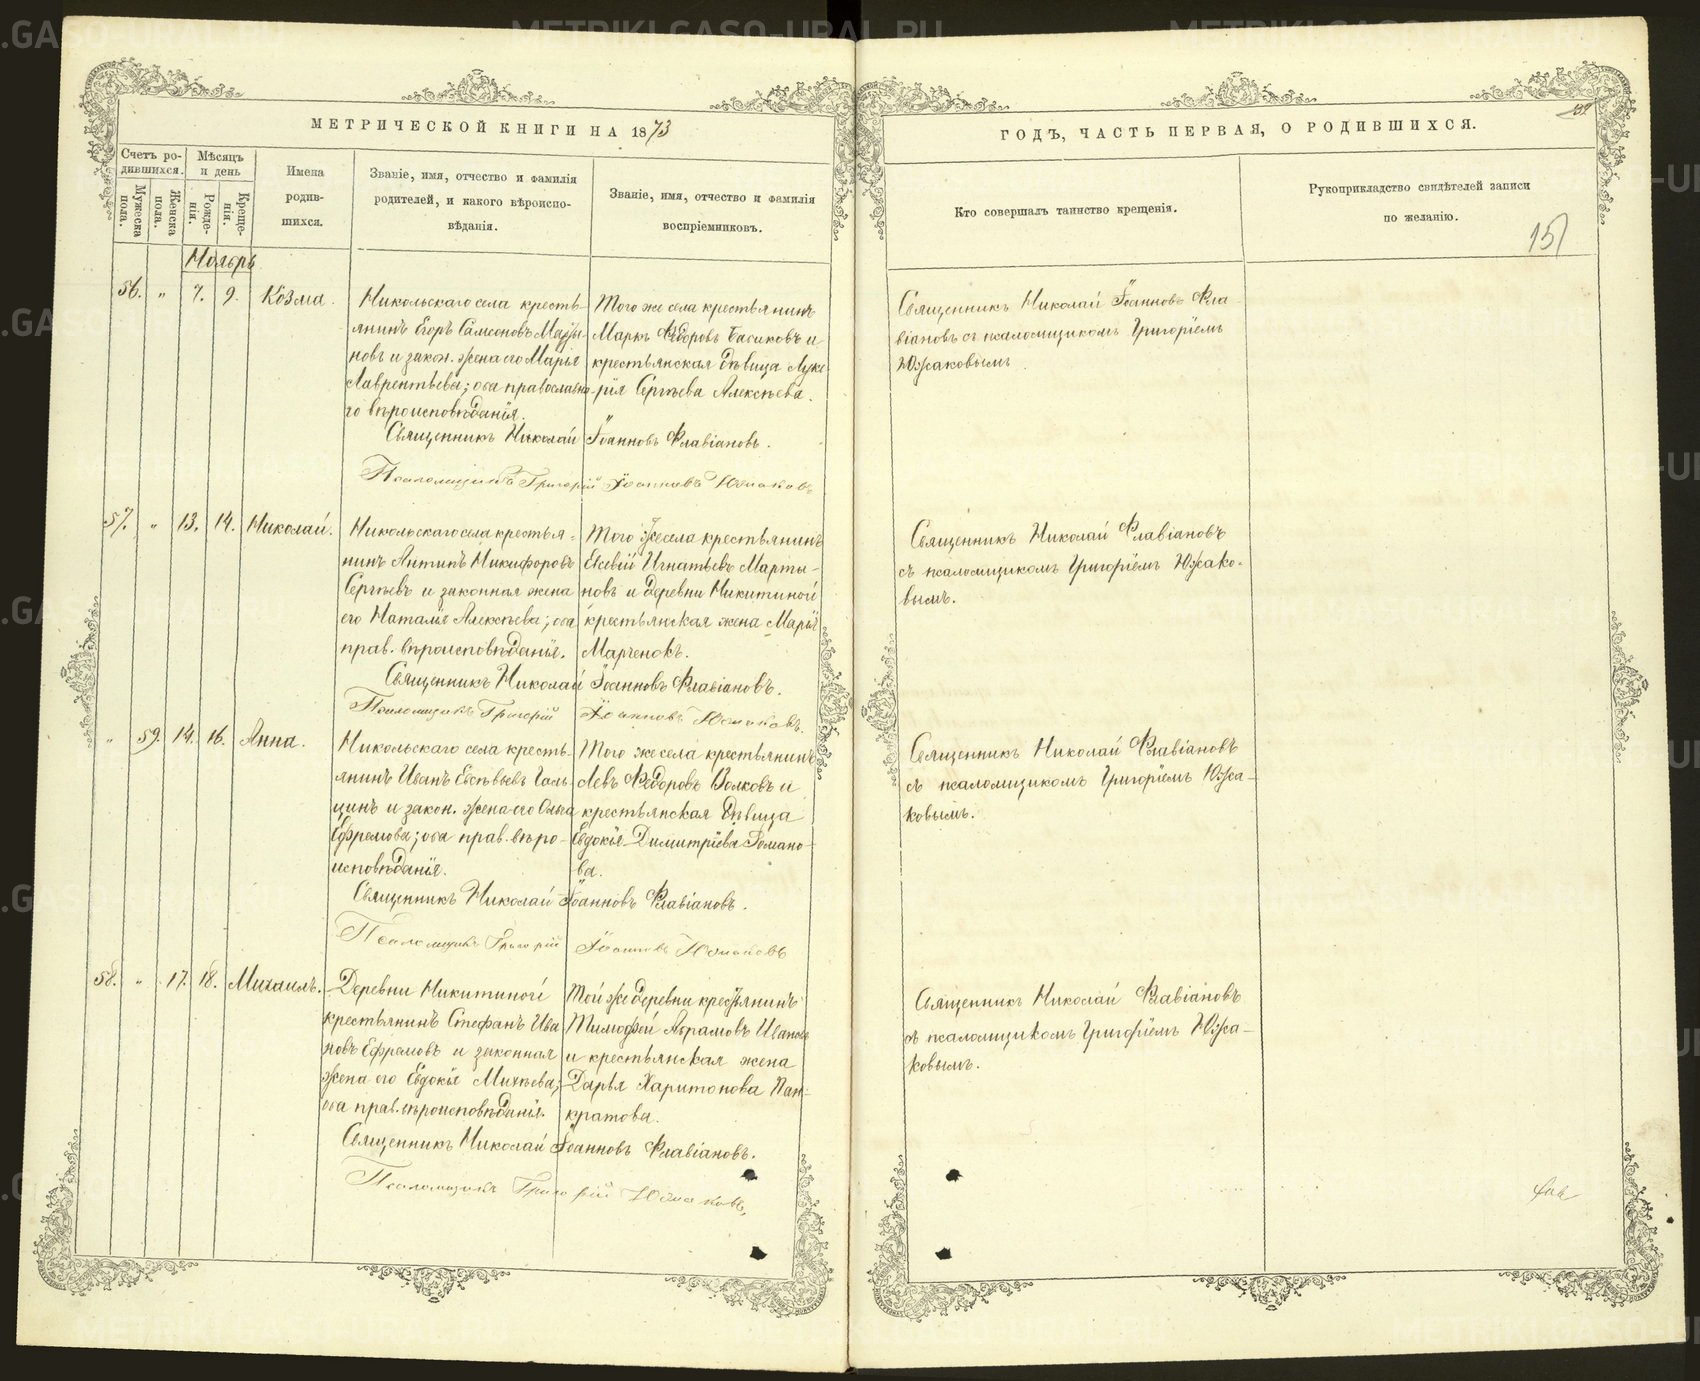 МЕТРИЧЕСКОЙ КНИГИ НА 1873
ГОДЪ, ЧАСТЬ ПЕРВАЯ, О РОДИВШИХСЯ.
Счетъ ро-
дившихся.
Мужеска
пола.
Женска
пола.
Мѣсяцъ
и день
Рожде-
нія.
Креще-
нія.
Имена
родив-
шихся.
Званіе, имя, отчество и фамилія
родителей, и какого вѣроиспо-
вѣданія.
Званіе, имя, отчество и фамилія
воспріемниковъ.
Кто совершалъ таинство крещенія.
Рукоприкладство свидѣтелей записи
по желанію.
151
Ноябрь
56. „ 7. 9. Козма.
Никольскаго села кресть-
янинъ Егоръ Самсоновъ
новъ и закон. жена его Марья
Лаврентьева; оба православна-
го вѣроисповѣданія.
Того же села крестьянинъ
Маркъ Ѳедоровъ Басиковъ и
крестьянская дѣвица Луке-
рія Сергѣева Алексѣева.
Священникъ Николай Іоанновъ Флавіановъ.
Псаломщикъ Григорій Іоанновъ Южаковъ
Священникъ Николай Іоанновъ Фла-
віановъ съ псаломщикомъ Григоріемъ
Южаковымъ.
57. „ 13. 14. Николай.
Никольскаго села крестья-
нинъ Антипъ Никифоровъ
Сергѣевъ и законная жена
его Наталія Алексѣева; оба
прав. вѣроисповѣданія.
Того же села крестьянинъ
Евсевій Игнатьевъ Марты-
новъ и деревни Никитиной
крестьянская жена Марія
Марченокъ.
Священникъ Николай Іоанновъ Флавіановъ.
Псаломщикъ Григорій Іоанновъ Южаковъ.
Священникъ Николай Флавіановъ
съ псаломщикомъ Григоріемъ Южако-
вымъ.
„ 59. 14. 16. Анна.
Никольскаго села кресть-
янинъ Иванъ Евсѣвьевъ Голь-
цинъ и закон. жена его Ольга
Ефремова; оба прав. вѣро-
исповѣданія.
Того же села крестьянинъ
Левъ Ѳедоровъ Волковъ и
крестьянская дѣвица
Евдокія Димитріева Романо-
ва.
Священникъ Николай Іоанновъ Флавіановъ.
Псаломщикъ Григорій Іоанновъ Южаковъ
Священникъ Николай Флавіановъ
съ псаломщикомъ Григоріемъ Южа-
ковымъ.
58. „ 17. 18. Михаилъ.
Деревни Никитиной
крестьянинъ Стефанъ Ива-
новъ Ефремовъ и законная
жена его Евдокія Михѣева;
оба прав. вѣроисповѣданія.
Той же деревни крестьянинъ
Тимофей Абрамовъ Ивановъ
и крестьянская жена
Дарья Харитонова Пан-
кратова.
Священникъ Николай Іоанновъ Флавіановъ.
Псаломщикъ Григорій Южаковъ,
Священникъ Николай Флавіановъ
съ псаломщикомъ Григоріемъ Южа-
ковымъ.
METRIKI.GASO-URAL.RU